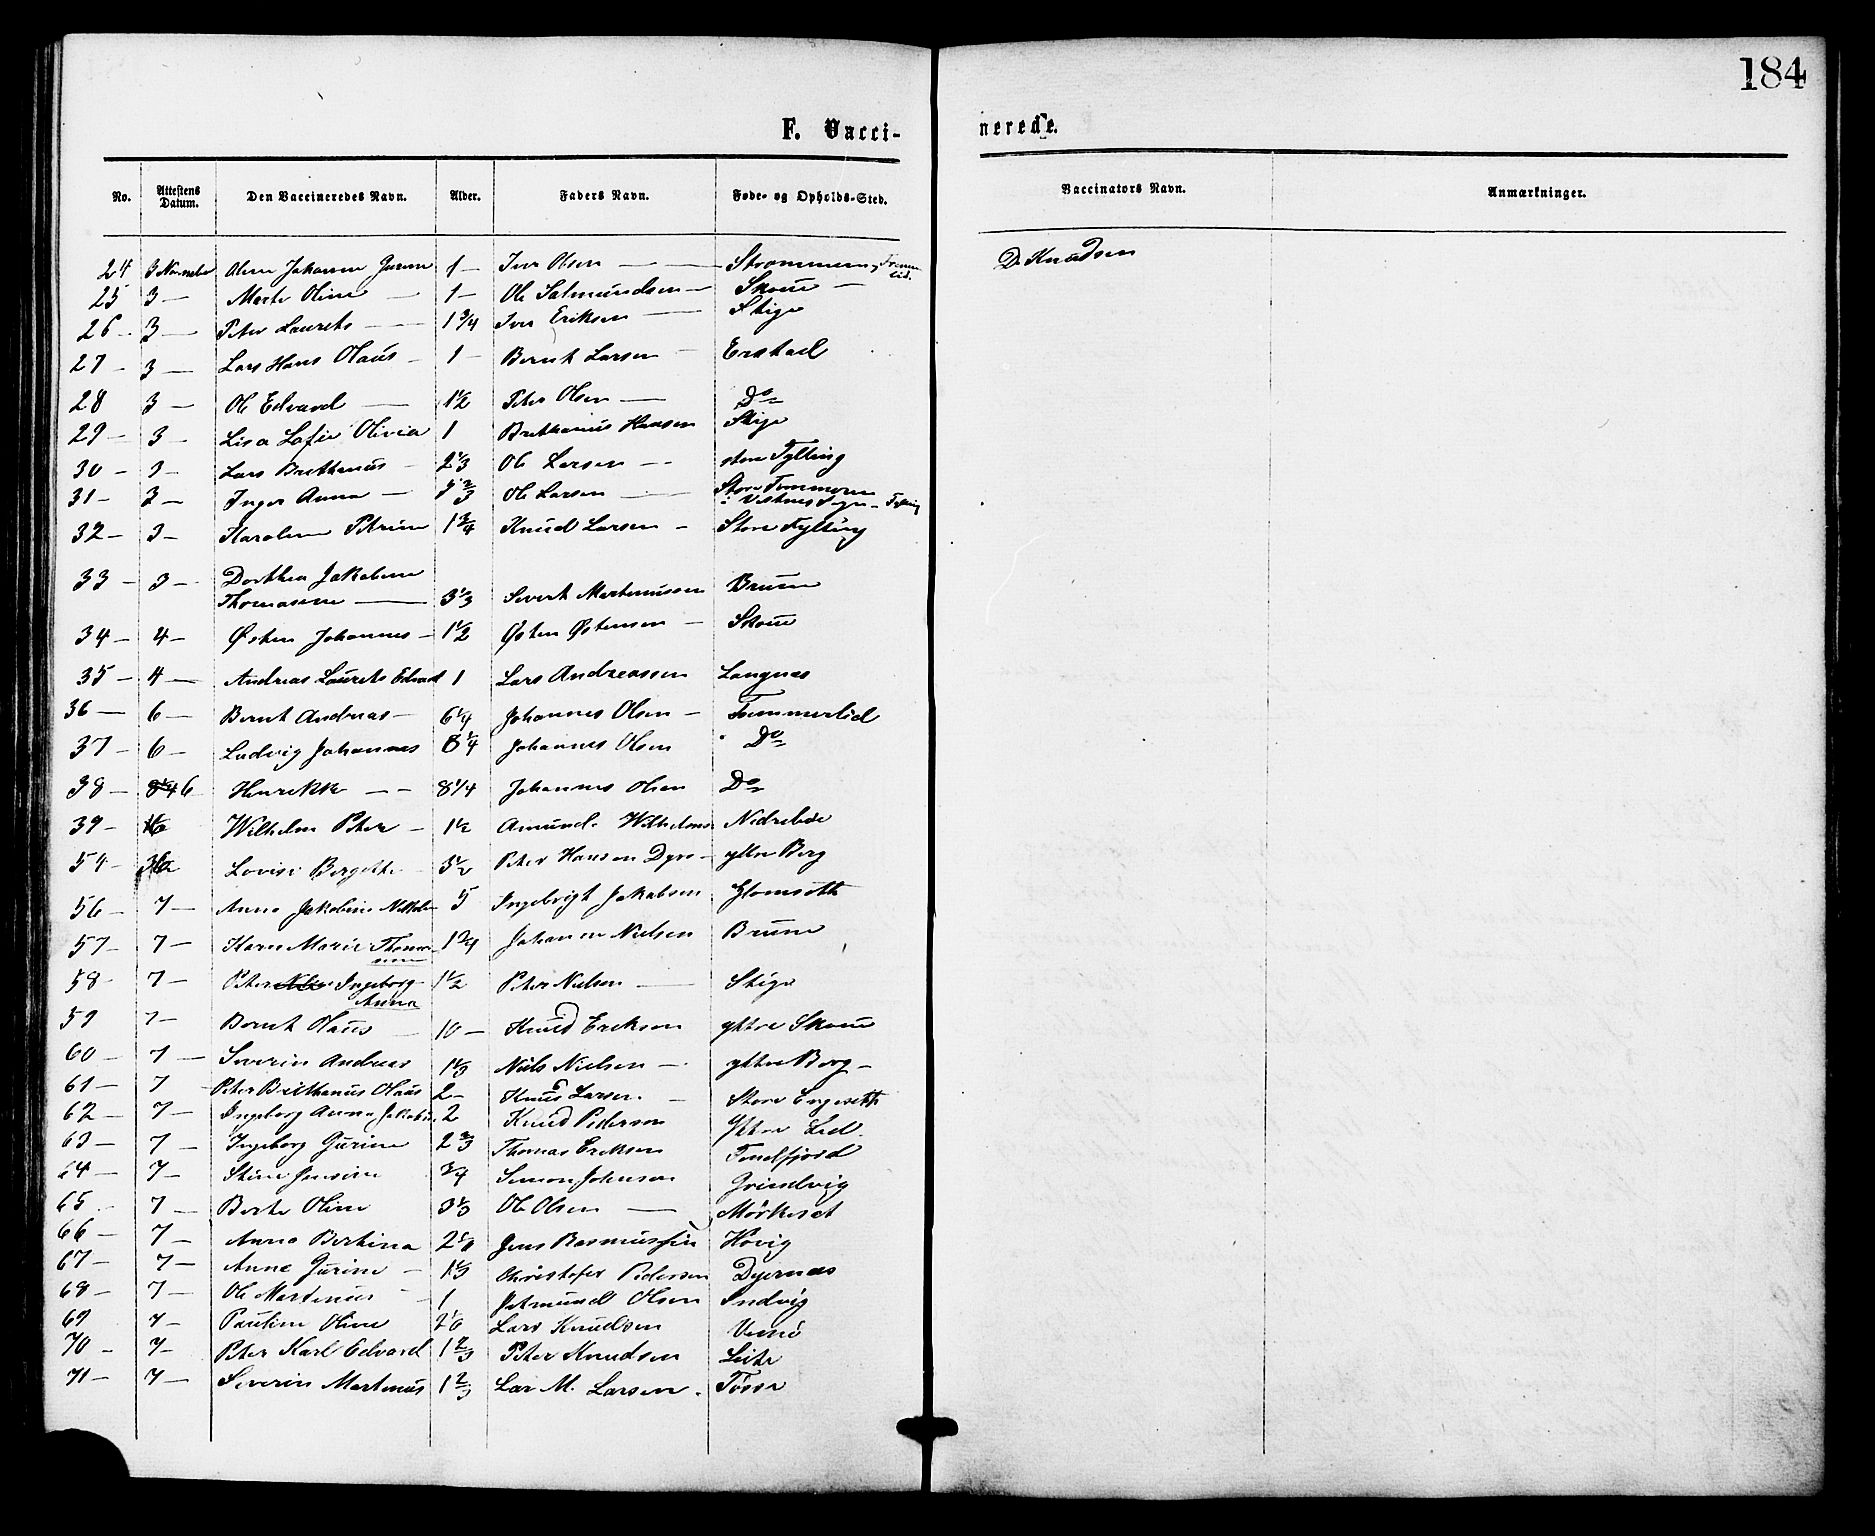 184
F. Vacci- nerede.
No. Attestens Datum. Den Vaccineredes Navn. Alder. Faders Navn. Føde- og Opholds-Sted. Vaccinators Navn. Anmærkninger.
24 3 Novembr Oline Johanne Gurine 1 — Iver Olsen — — Strømmem D. Knudsen
25 3 — Marte Oline — 1 — Ole Salmundsen — Skoue —
26 - 3 — Peter Laurits — 1 3/4 Iver Eriksen — Stige
27 - 3 — Lars Hans Olaus - 1 — Bernt Larsen — Erstad
28 3 — Ole Edvard — 1 1/2 Peter Olsen — Do
29 - 3 - Lisa Lofie Olivia 1 Brethanus Hansen Stige
30 - 3 - Lars Brethanus - 2 1/3 Ole Larsen — store Fylling
31 - 3 - Inger Anna — 2/3 Ole Larsen — Store Tommeren
i Vestnes Sogn -
32 - 3 - Karoline Petrine 1 3/4 Knud Larsen - Store Fylling
33 - 3 - Dorthea Jakobine
Thomasine — 3 1/3 Sivert Martinussen Bruun
34 - 4 - Østen Johannes - 1 1/2 Østen Østensen — Skoue
35 - 4 — Andreas Laurits Edvard 1 Lars Andreassen Langnes
36 — 6 — Bernt Andreas — 6 1/4 Johannes Olsen - Tømmerlid
37 - 6 - Ludvig Johannes 8 1/4 Johannes Olsen Do
38 - 6 Henrikke — — 8 1/4 Johannes Olsen Do
39 - 6 Wilhelm Peter — 1 1/2 Amund Wilhelms Nedrebøe
54 - Lovise Bergitte 3 1/2 Peter Hansen Dyrs - ytre Berg
56 - 7 — Anne Jakobine Nikol 5 Ingebrigt Jakobsen Glomseth
57 - 7 — Karn Marie Thoma-
sine 1 3/4 Johanne Nielsen Bruun
58 - 7 - Peter Ingeborg
Anna 1 1/2 Peter Nielsen — Stige
59 7 - Bernt Olaus 10 — Knud Eriksen yttre Skoue
60 - 7 — Severin Andreas 1 1/3 Niels Nielsen — yttre Berg -
61 - 7 - Peter Brithanus Olaus 2 - Knud Larsen - Store Engeseth
62 - 7 - Ingeborg Anna Jakobin 2 Knud Pedersen Yttre Lid.
63 - 7 - Ingeborg Gurine 2 2/3 Thomas Eriksen Tennfjord
64 - 7 - Stine Jensine 3/4 Simon Johnsen Grindvig
65 - 7 - Berte Oline 3 1/3 Ole Olsen — Mørkeset
66 - 7 - Anna Bertina 2 Jens Rasmussen Hovig
67 - 7 - Anne Gurine — 1 1/3 Christofer Pedersen Dyernæs
68 - 7 - Ole Martinus - 1 Jetmund Olsen Indvig
69 7 - Pauline Oline 2 1/6 Lars Knudsen Vemø
70 - 7 - Peter Karl Edvard 1 2/3 Peter Knudsen Leite
71 - 7 - Severin Martinus 1 2/3 Lar M. Larsen. Tøsse